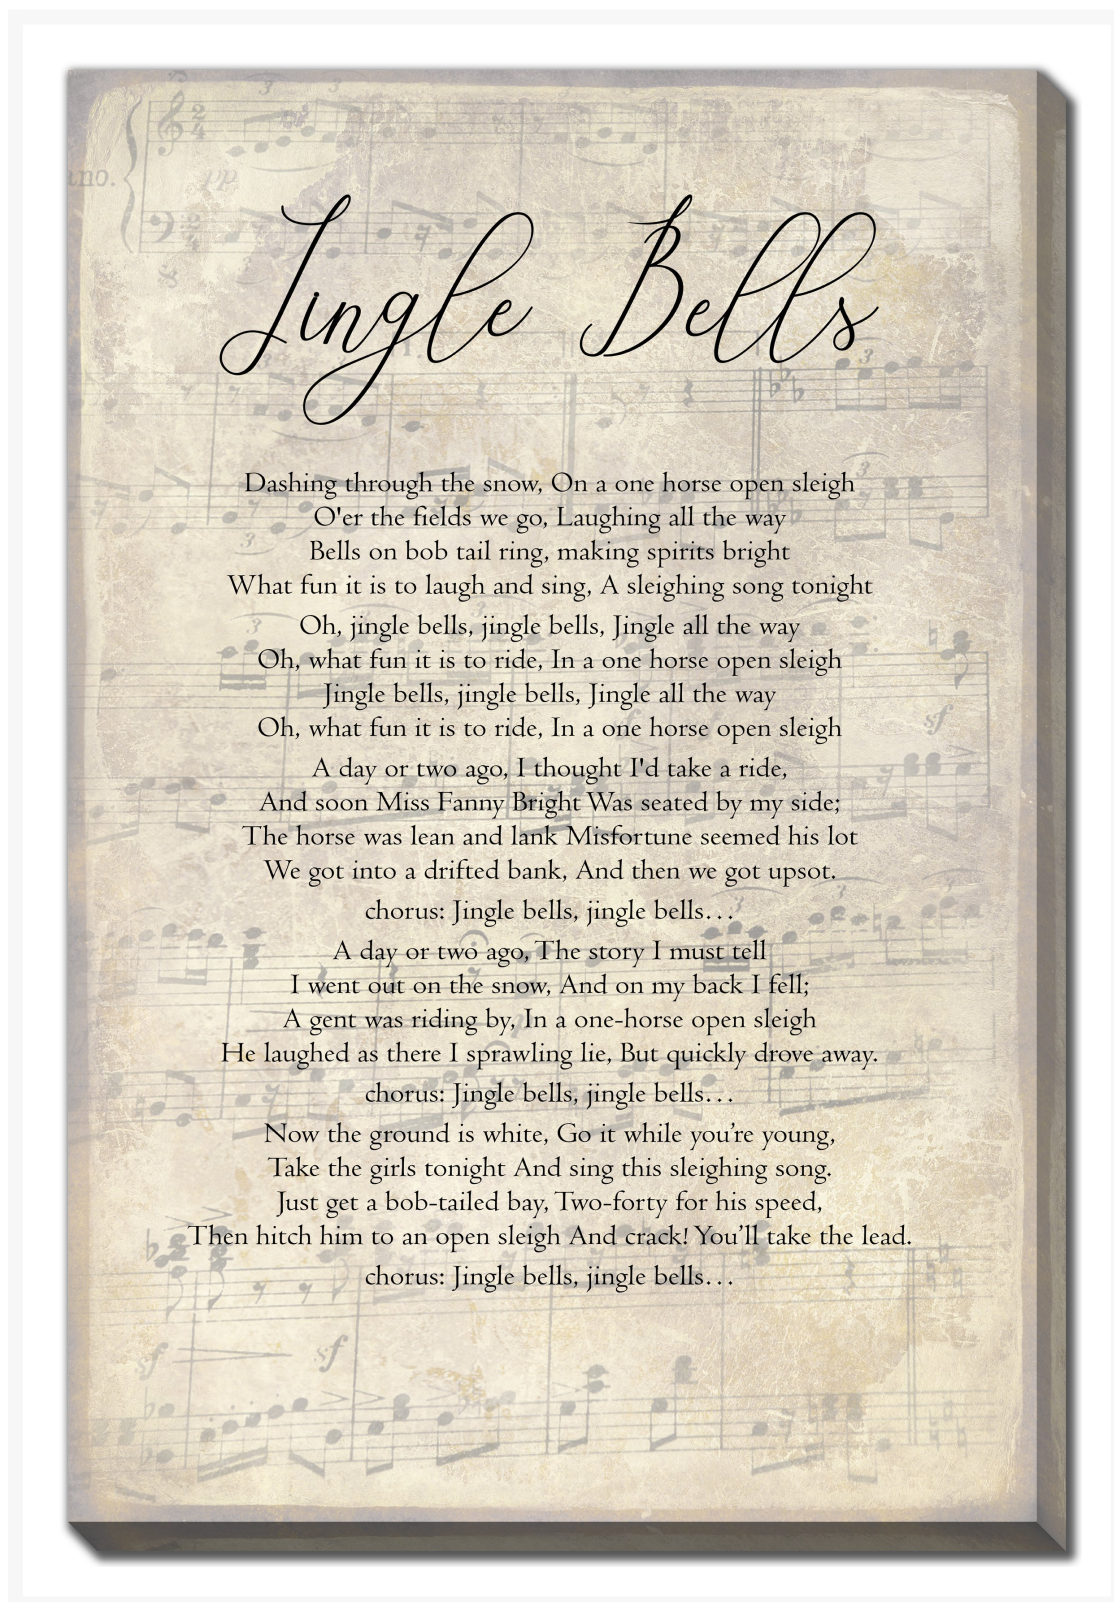 Jingle Bells
Dashing through the snow, On a one horse open sleigh
O'er the fields we go, Laughing all the way
Bells on bob tail ring, making spirits bright
What fun it is to laugh and sing, A sleighing song tonight
Oh, jingle bells, jingle bells, Jingle all the way
Oh, what fun it is to ride, In a one horse open sleigh
Jingle bells, jingle bells, Jingle all the way
Oh, what fun it is to ride, In a one horse open sleigh
A day or two ago, I thought I'd take a ride,
And soon Miss Fanny Bright Was seated by my side;
The horse was lean and lank Misfortune seemed his lot
We got into a drifted bank, And then we got upsot.
chorus: Jingle bells, jingle bells…
A day or two ago, The story I must tell
I went out on the snow, And on my back I fell;
A gent was riding by, In a one-horse open sleigh
He laughed as there I sprawling lie, But quickly drove away.
chorus: Jingle bells, jingle bells…
Now the ground is white, Go it while you’re young,
Take the girls tonight And sing this sleighing song.
Just get a bob-tailed bay, Two-forty for his speed,
Then hitch him to an open sleigh And crack! You’ll take the lead.
chorus: Jingle bells, jingle bells…